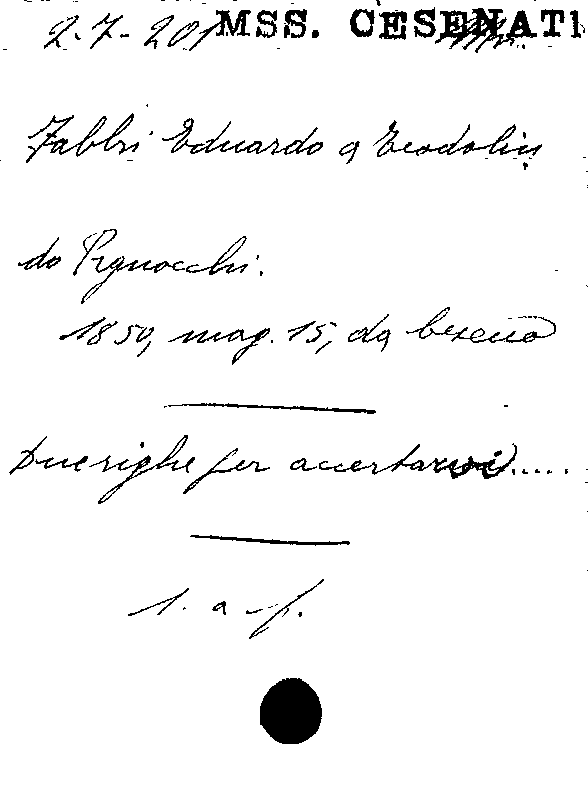 2-7-201 MSS. CESENATI
Fabbri Eduardo a Teodolin
do Pignocchi.
1850, mag. 15, da Cesena
Due righe per accertarvi.....
l. a f.